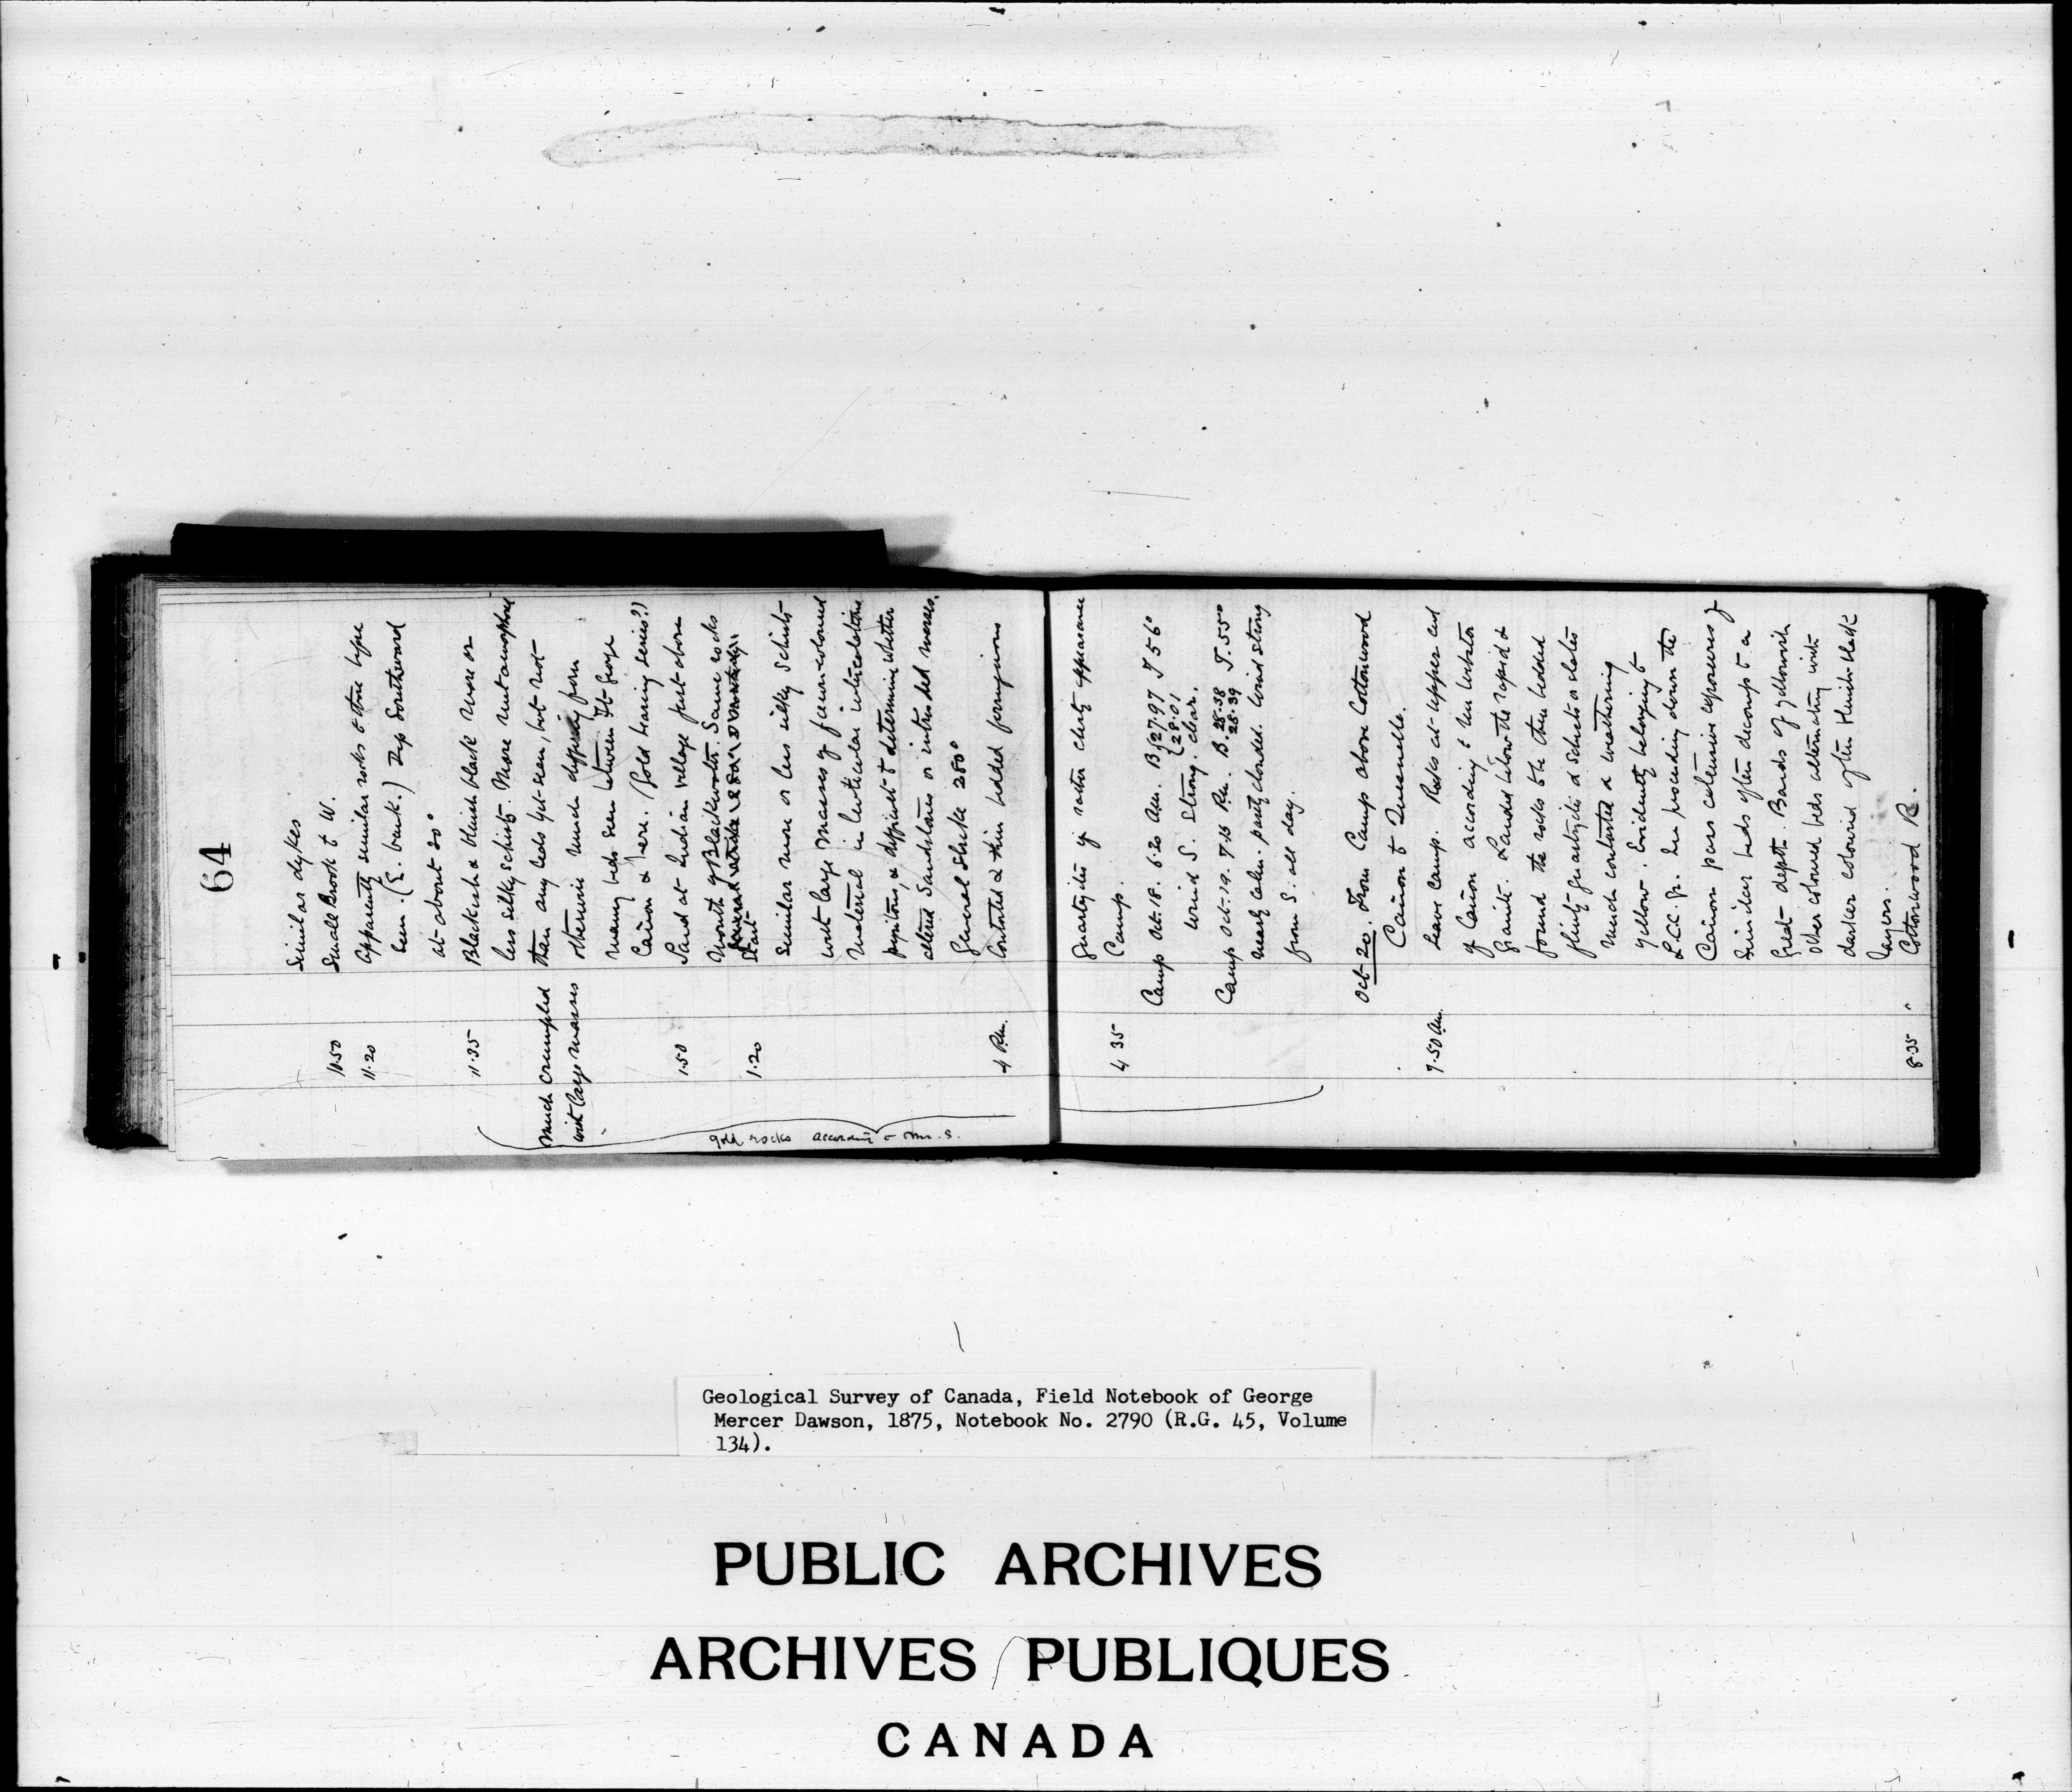 64
Similar dykes
10.50 Small Brook to W.
11.20 Apparently similar rocks to those before
seen. (E. bank.) Dip Southward
at about 20°
11.35 Blackish & bluish black more or
less silky schists. More metamorphosed
Much crumpled than any beds yet seen, but not
with large masses otherwise much differing from
many beds seen between Ft George
Cañon & here. (Gold bearing series?)
1.50 Land at Indian village just above
Mouth of Blackwater. Same rocks
General strike
1.20 Start
Similar more or less silky Schists
with large masses of
material in lenticular intercalations
pyritous, & difficult to determine whether
altered Sandstones or intruded masses.
General Strike 280°
4 P.m. Contorted & thin bedded ferruginous
gold rocks according to Mr. S.
quartzites of rather cherty appearance
4 35 Camp.
Camp Oct. 18. 6.20 Am. B. {27.97 T 56°
{28.01
Wind S. Strong. clear.
Camp Oct. 19. 7.15 P.m. B. 28.38 T. 55°
28.39
nearly calm. partly clouded. Wind strong
from S. all day.
Oct 20. From Camp above Cottonwood
Cañon to Quesnelle.
7.50 Am. Leave camp. Rocks at upper end
of Cañon according to Mr Webster
Granite. Landed below the rapid &
found the rocks to be thin bedded
flinty quartzites & Schists or slates
much contorted & weathering
yellow. Evidently belonging to
L.C.C. Gr. In proceeding down the
Cañon pass extensive exposures of
Similar beds often decomp to a
Great depth. Bands of yellowish
other coloured beds alternating with
darker coloured often bluish-black
layers.
8.35 " Cottonwood R.
Geological Survey of Canada, Field Notebook of George
Mercer Dawson, 1875, Notebook No. 2790 (R.G. 45, Volume
134).
PUBLIC ARCHIVES
ARCHIVES PUBLIQUES
CANADA